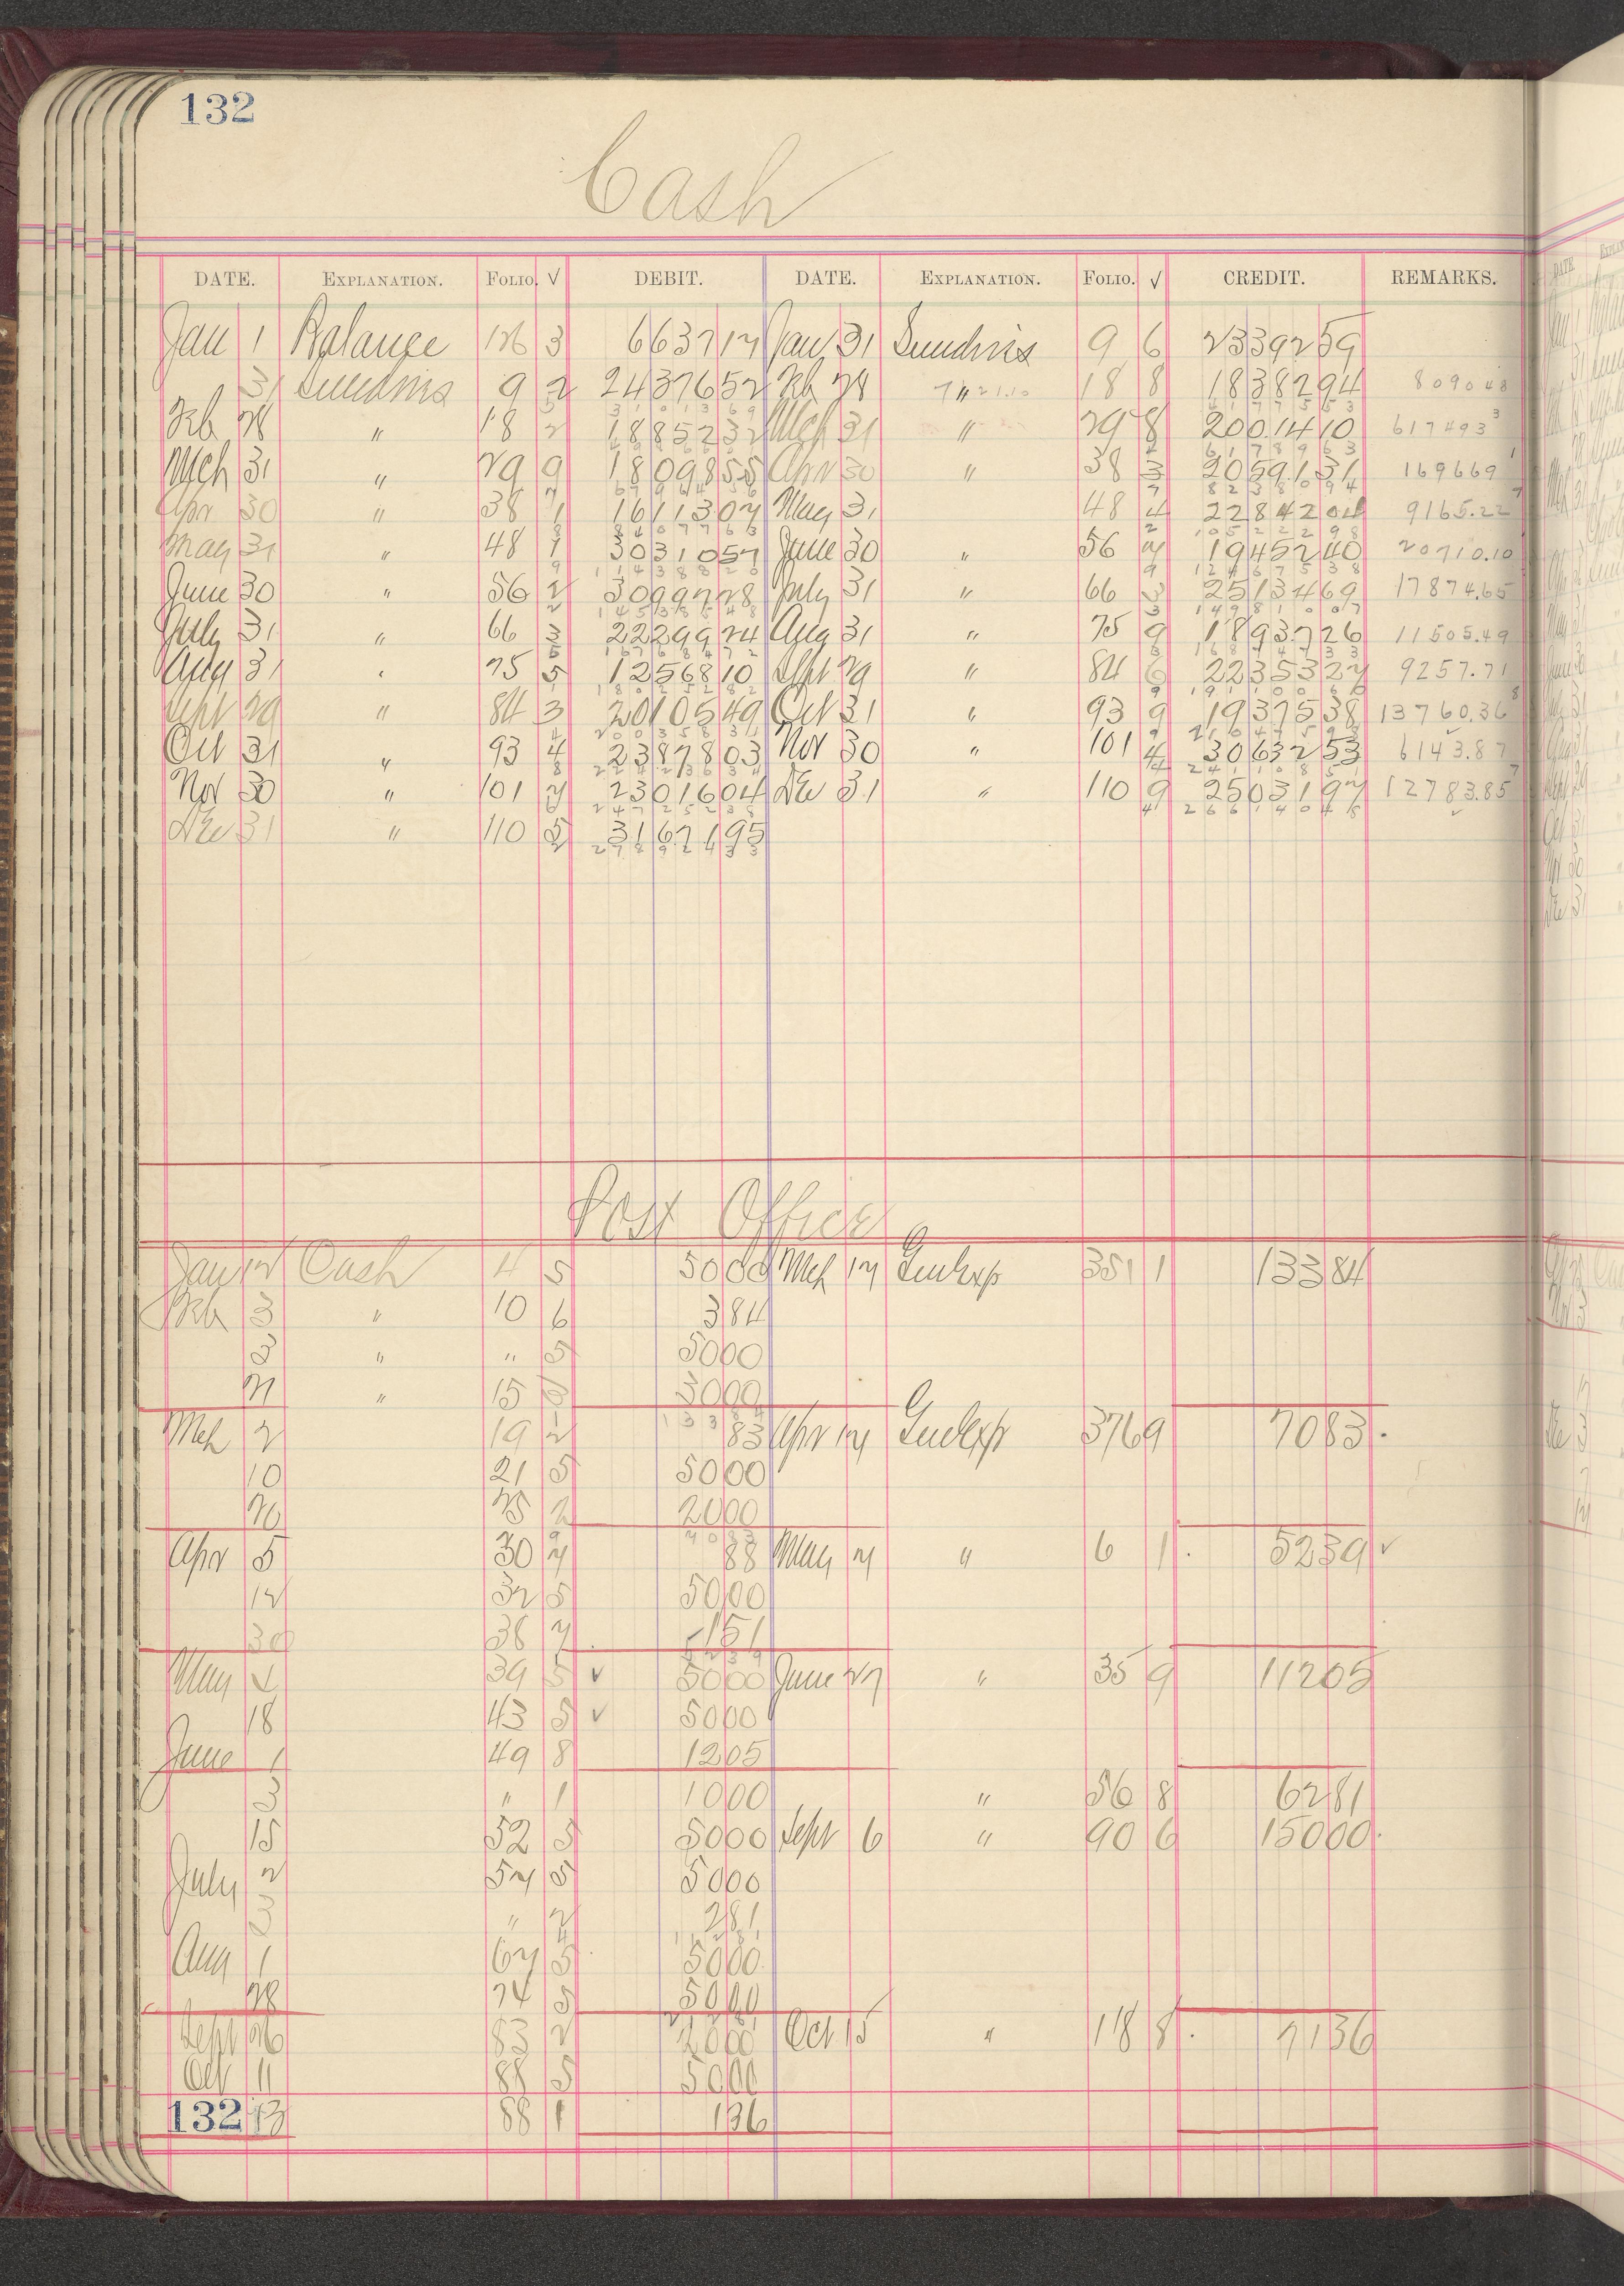 132
Cash
DATE. EXPLANATION. FOLIO. √ DEBIT. DATE. EXPLANATION. FOLIO. √ CREDIT. REMARKS.
Jan 1 Balance 126 3 663717 Jan 31 Sundries 9 6 2339259
31 Sundries 9 2 2437652 Feb 28 " 18 8 1838294 809048
Feb 28 " 18 2 1885232 Mch 31 " 29 8 2001410 617493
Mch 31 " 29 9 1809855 Apr 30 " 38 3 2059131 169669
Apr 30 " 38 1 1611307 May 31 48 4 2284204 9165.22
May 31 " 48 1 3031057 June 30 " 56 7 1945240 20710.10
June 30 " 56 2 3099728 July 31 " 66 3 2513469 17874.65
July 31 " 66 3 2229924 Aug 31 " 75 9 1893726 11505.49
Aug 31 " 75 5 1256810 Sept 29 " 84 6 2235327 9257.71
Sept 29 " 84 3 2010549 Oct 31 " 93 9 1937538 13760.36
Oct 31 " 93 4 2387803 Nov 30 " 101 4 3063253 6143.87
Nov 30 " 101 7 2301604 Dec 31 " 110 9 2503197 12783.85
Dec 31 " 110 5 3167195
Post Office
Jan 12 Cash 4 5 5000 Mch 17 Genlexp 351 1 13384
Feb 3 " 10 6 384
3 " " 5 5000
21 " 15 3 3000
Mch 2 19 2 83 Apr 17 Genlexp 376 9 7083
10 21 5 5000
20 25 2 2000
Apr 5 30 7 88 May 7 " 6 1 5239 √
12 32 5 5000
30 38 7 151
May 39 5 √ 5000 June 27 " 35 9 11205
18 43 5 √ 5000
June 1 49 8 1205
3 " 1 1000 " 56 8 6281
15 52 5 5000 Sept 6 " 90 6 15000
July 2 57 5 5000
3 " 2 281
Aug 1 67 5 5000
28 74 5 5000
Sept 26 83 2 2000 Oct 15 " 118 8 7136
Oct 11 88 5 5000
132 13 88 1 136